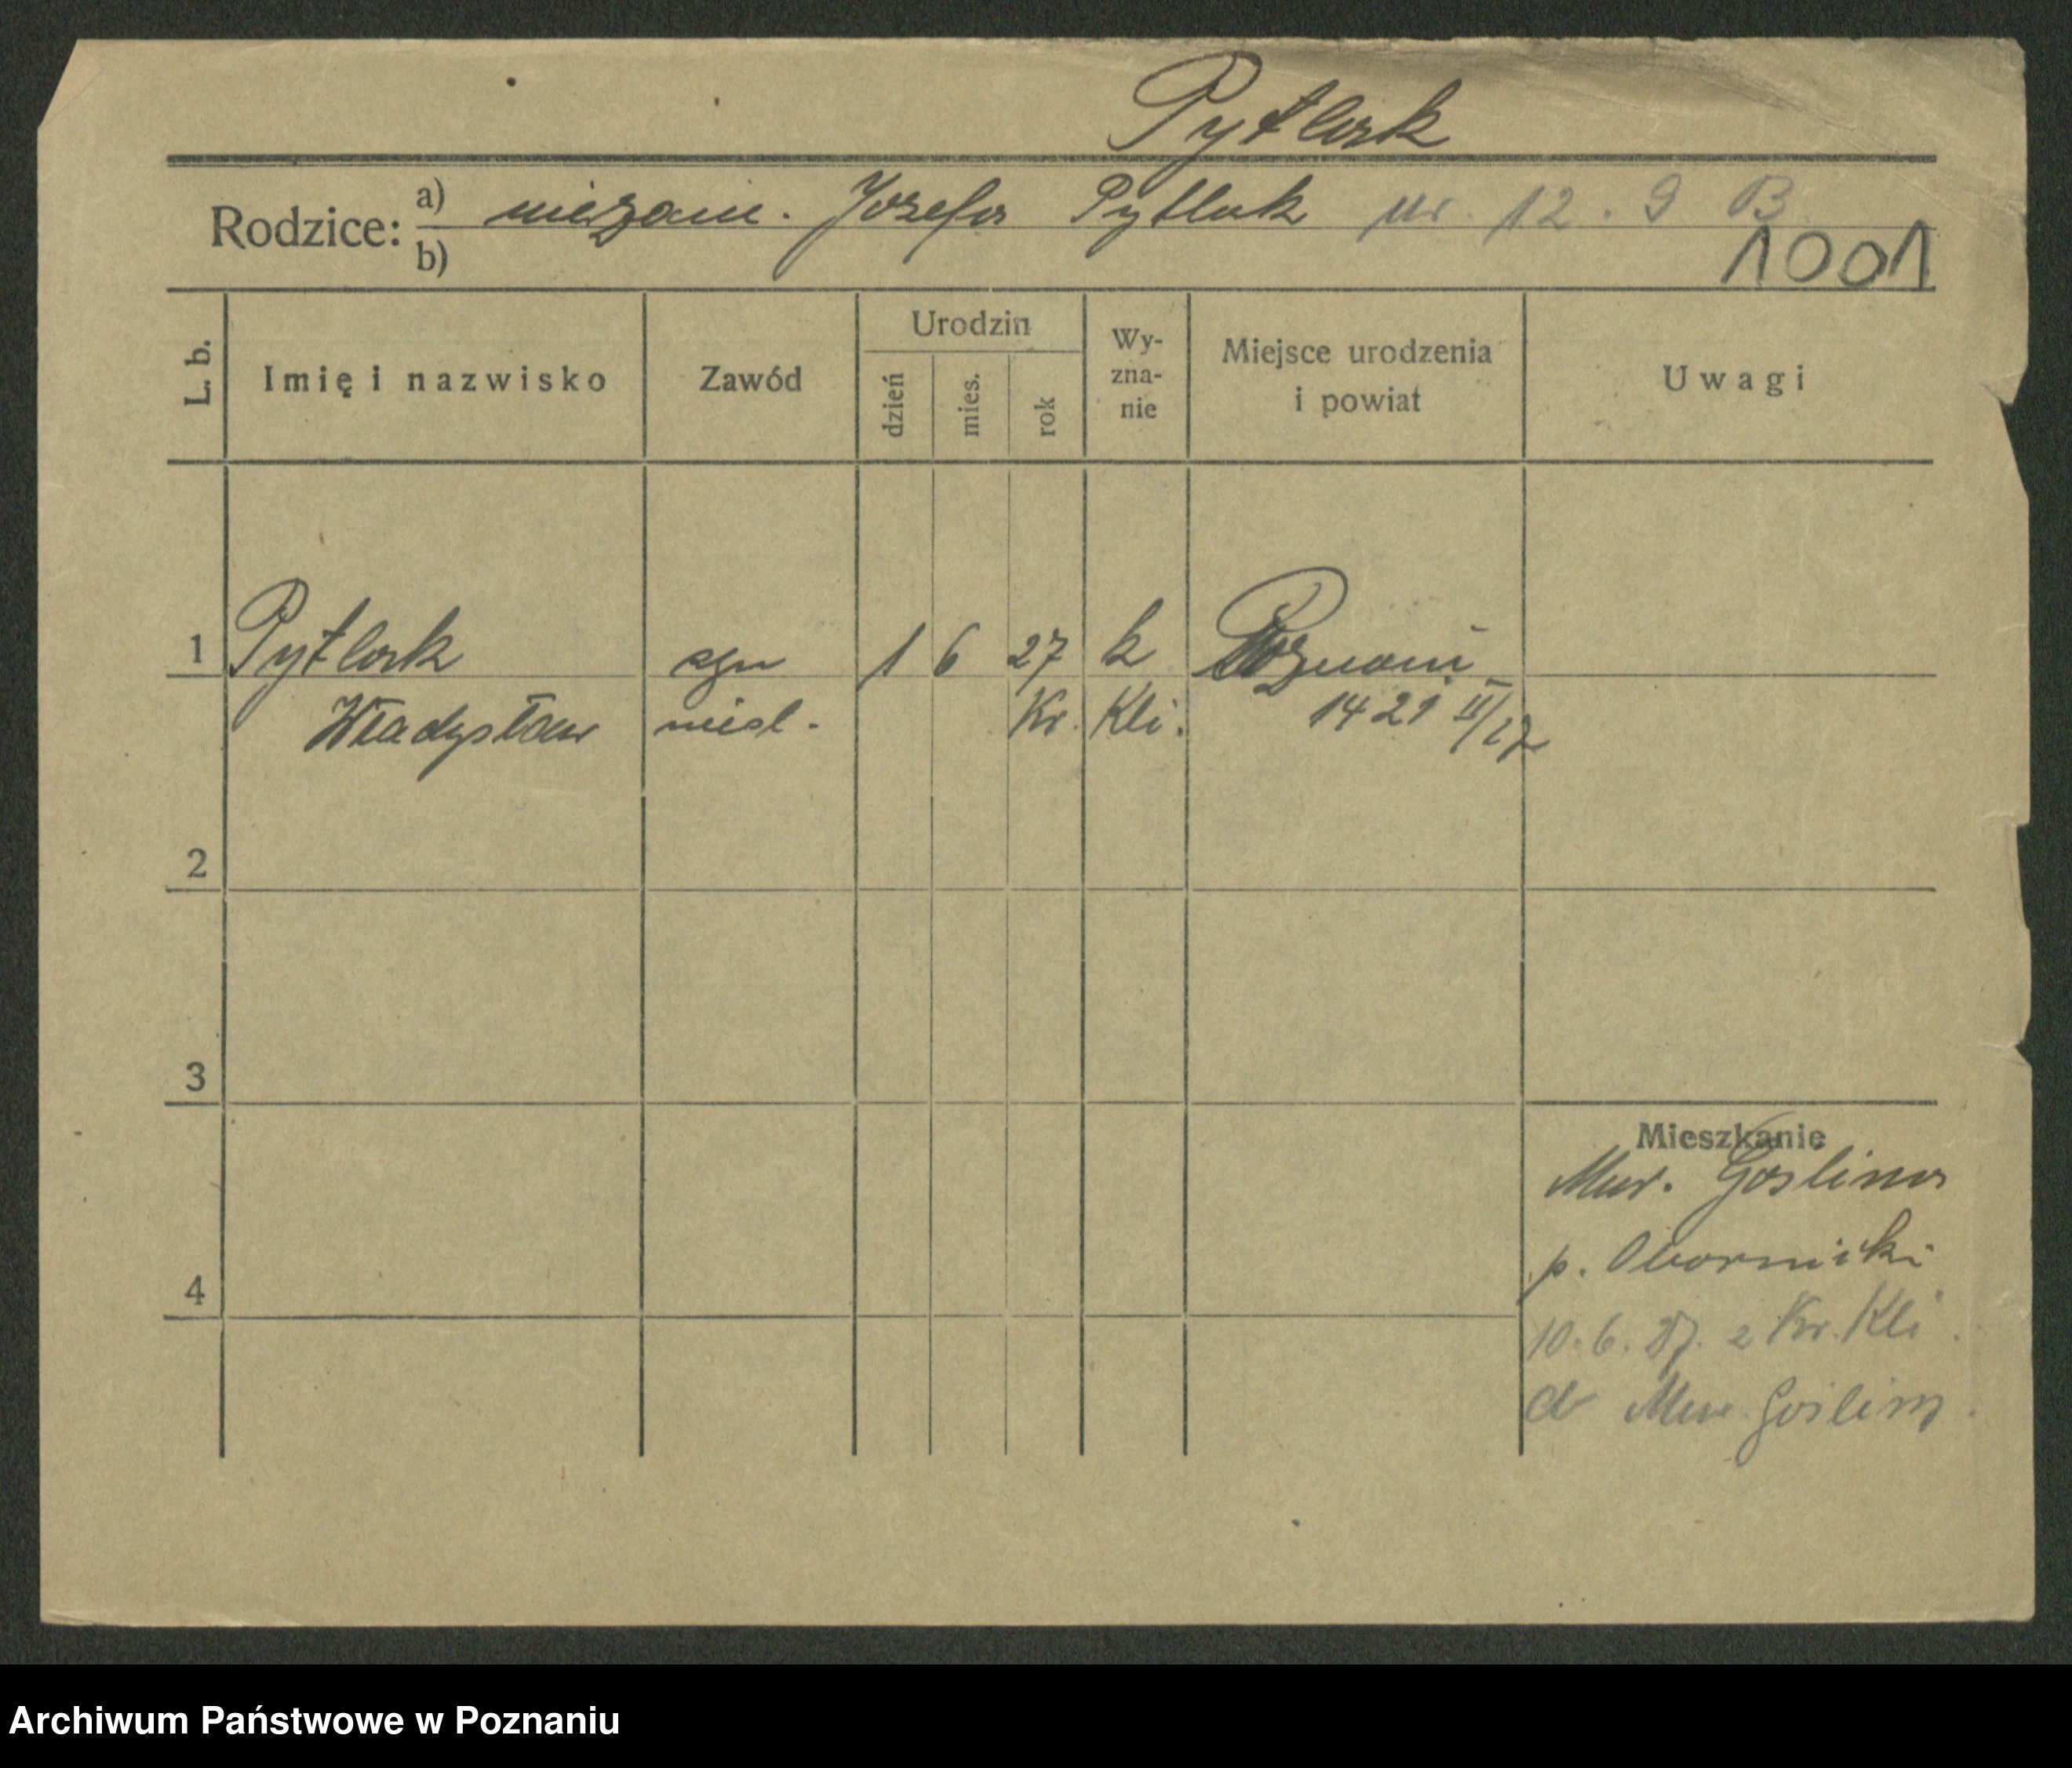 Pytlak
Rodzice: a) niezam. Józefa Pytlak ur. 12. 9 B
b) 1001
L. b. Imię i nazwisko Zawód Urodzin dzień mies. rok Wy-zna-nie Miejsce urodzenia i powiat Uwagi
1 Pytlak syn 1 6 27 k Poznań
Władysław nieśl. Kr. Kli. 1421 II/27
2
3
Mieszkanie
Mur. Goslina
p. Obornicki
4
10. 6. 27. z Kr. Kli
d Mur Goślin
Archiwum Państwowe w Poznaniu